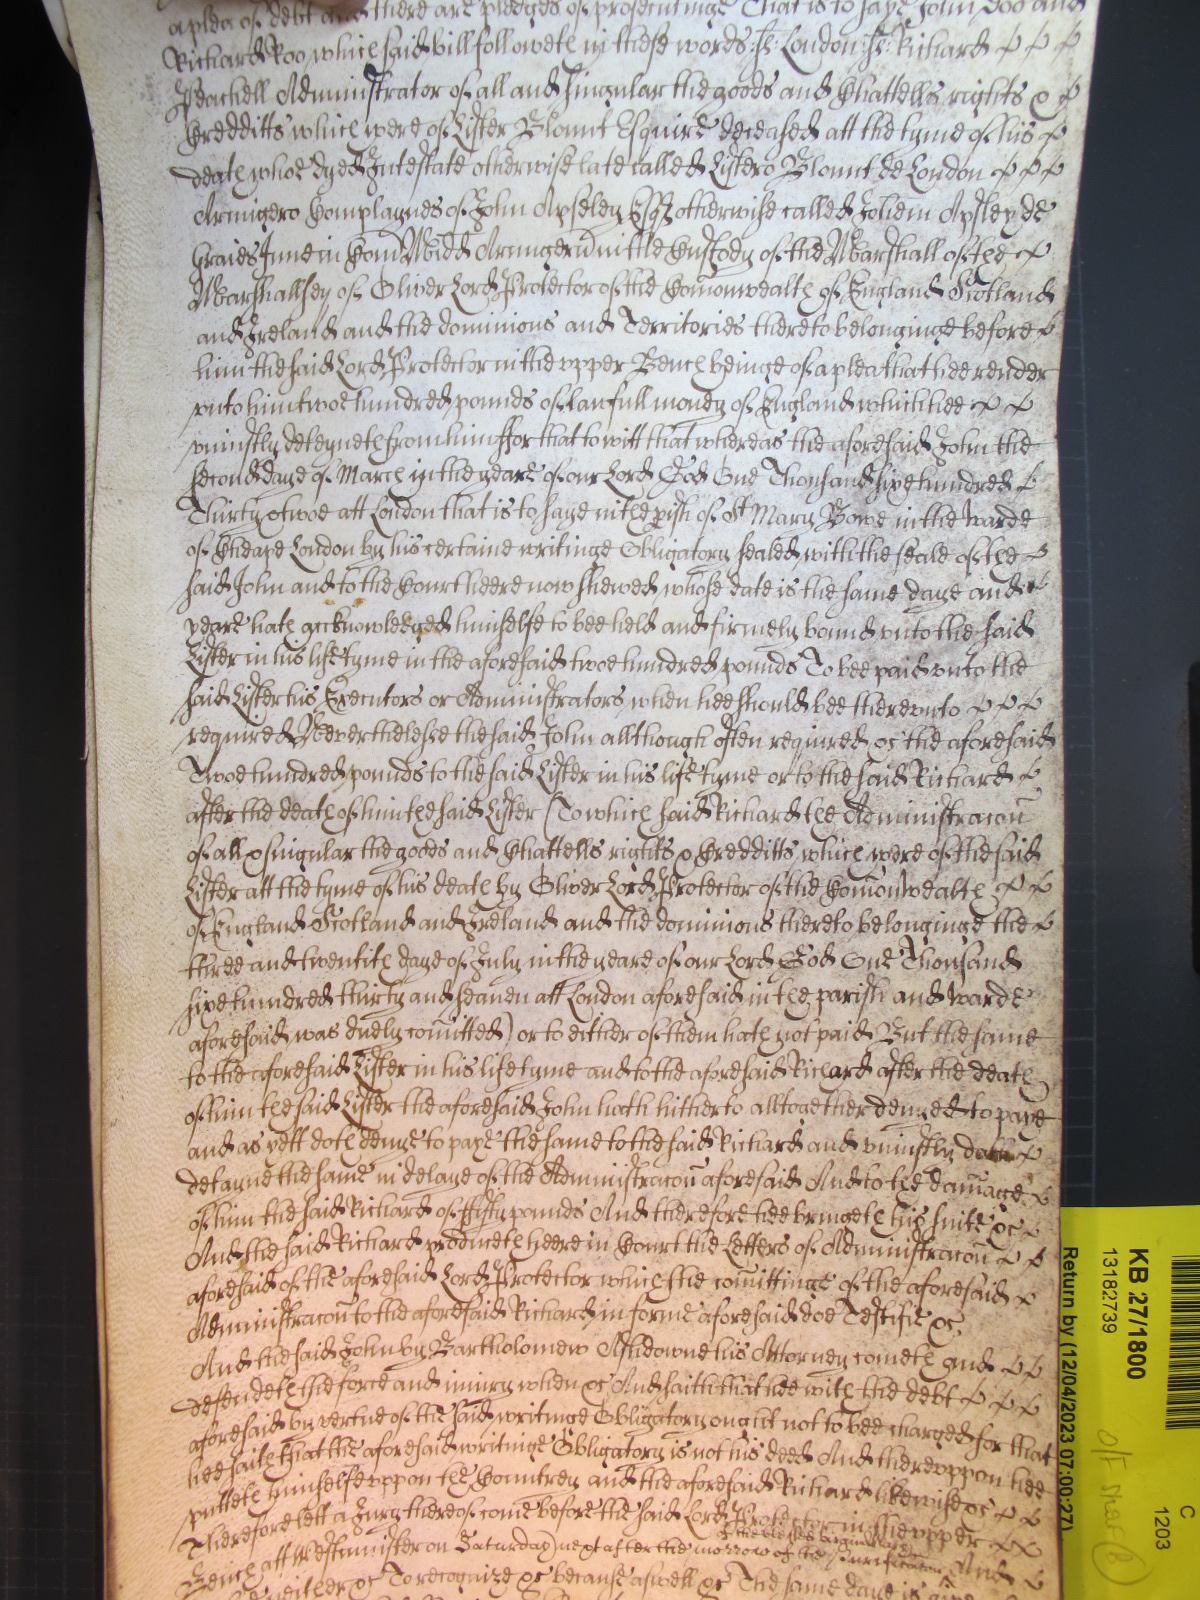 a plea of debt and there are pledges of prosecutinge That is to saye John Doo and
Richard Roo which said bill followeth in these words :ss: London :ss: Richard
Peachell Administrator of all and singular the goods and Chattells rights &
Credditts which were of Lister Blount Esquire deceased att the tyme of his
death whoe dyed Intestate otherwise late called Listero Blount de London
Armigero Complaynes of John Apseley Esqr otherwise called Johem Apsley de
Graies Inne in Com Midd Armigerū in the Custody of the Marshall of the
Marshallsey of Oliver Lord Protector of the Com̄onwealth of England Scotland
and Ireland and the dominions and Territories thereto belonginge before
him the said Lord Protector in the upper Bench beinge of a plea that hee render
unto him twoe hundred pounds of lawfull money of England which hee
uniustly deteyneth from him ffor that to witt that whereas the aforesaid John the
second daye of March in the yeare of our Lord God One Thousand sixe hundred
Thirty & twoe att London that is to saye in the pish of St Mary Bowe in the Warde
of Cheape London by his certaine writinge Obligatory sealed with the seale of the
said John and to the Court heere now shewed whose date is the same daye and
yeare hath acknowledged himselfe to bee held and firmely bound unto the said
Lister in his life tyme in the aforesaid twoe hundred pounds To bee paid unto the
said Lister his Executors or Administrators when hee should bee thereunto
required Neverthelesse the said John allthough often required &c the aforesaid
Twoe hundred pounds to the said Lister in his life tyme or to the said Richard
after the death of him the said Lister (To which said Richard the Administracoū
of all & singular the goods and Chattells rights & Credditts which were of the said
Lister att the tyme of his death by Oliver Lord Protector of the Com̄onwealth
of England Scotland and Ireland and the dominions thereto belonginge the
three and twentith daye of July in the yeare of our Lord God One Thousand
sixe hundred thirty and seaven att London aforesaid in the parish and Warde
aforesaid was duely com̄itted) or to either of them hath not paid But the same
to the aforesaid Lister in his life tyme and to the aforesaid Richard after the death
of him the said Lister the aforesaid John hath hitherto alltogether denyed to paye
and as yett doth denye to paye the same to the said Richard and uniustly doth
detayne the same in delaye of the Administracoū aforesaid And to the dam̄age
of him the said Richard of ffifty pounds And therefore hee bringeth his suite &c
And the said Richard produceth heere in Court the Letters of Administracoū
aforesaid of the aforesaid Lord Protector which the com̄ittinge of the aforesaid
Administracoū to the aforesaid Richard in forme aforesaid doe Testifie &c
And the said John by Bartholomew Ashdowne his Attorney cometh and
defendeth the force and iniury when &c And saith that hee with the debt
aforesaid by vertue of the said writinge Obligatory ought not to bee charged for that
hee saith that the aforesaid writinge Obligatory is not his deed And thereuppon hee
putteth himselfe uppon the Countrey and the aforesaid Richard likewise &c
Therefore lett a Jury thereof come before the said Lord Protector in the upper
Bench att Westminster on Saturday next after the morrow of the Purification
of the blessed virgin Mary And
neither &c To recognize &c because aswell &c The same daye is
KB 27/1800
13182739
Return by (12/04/2023 07:00:27)
C
1203